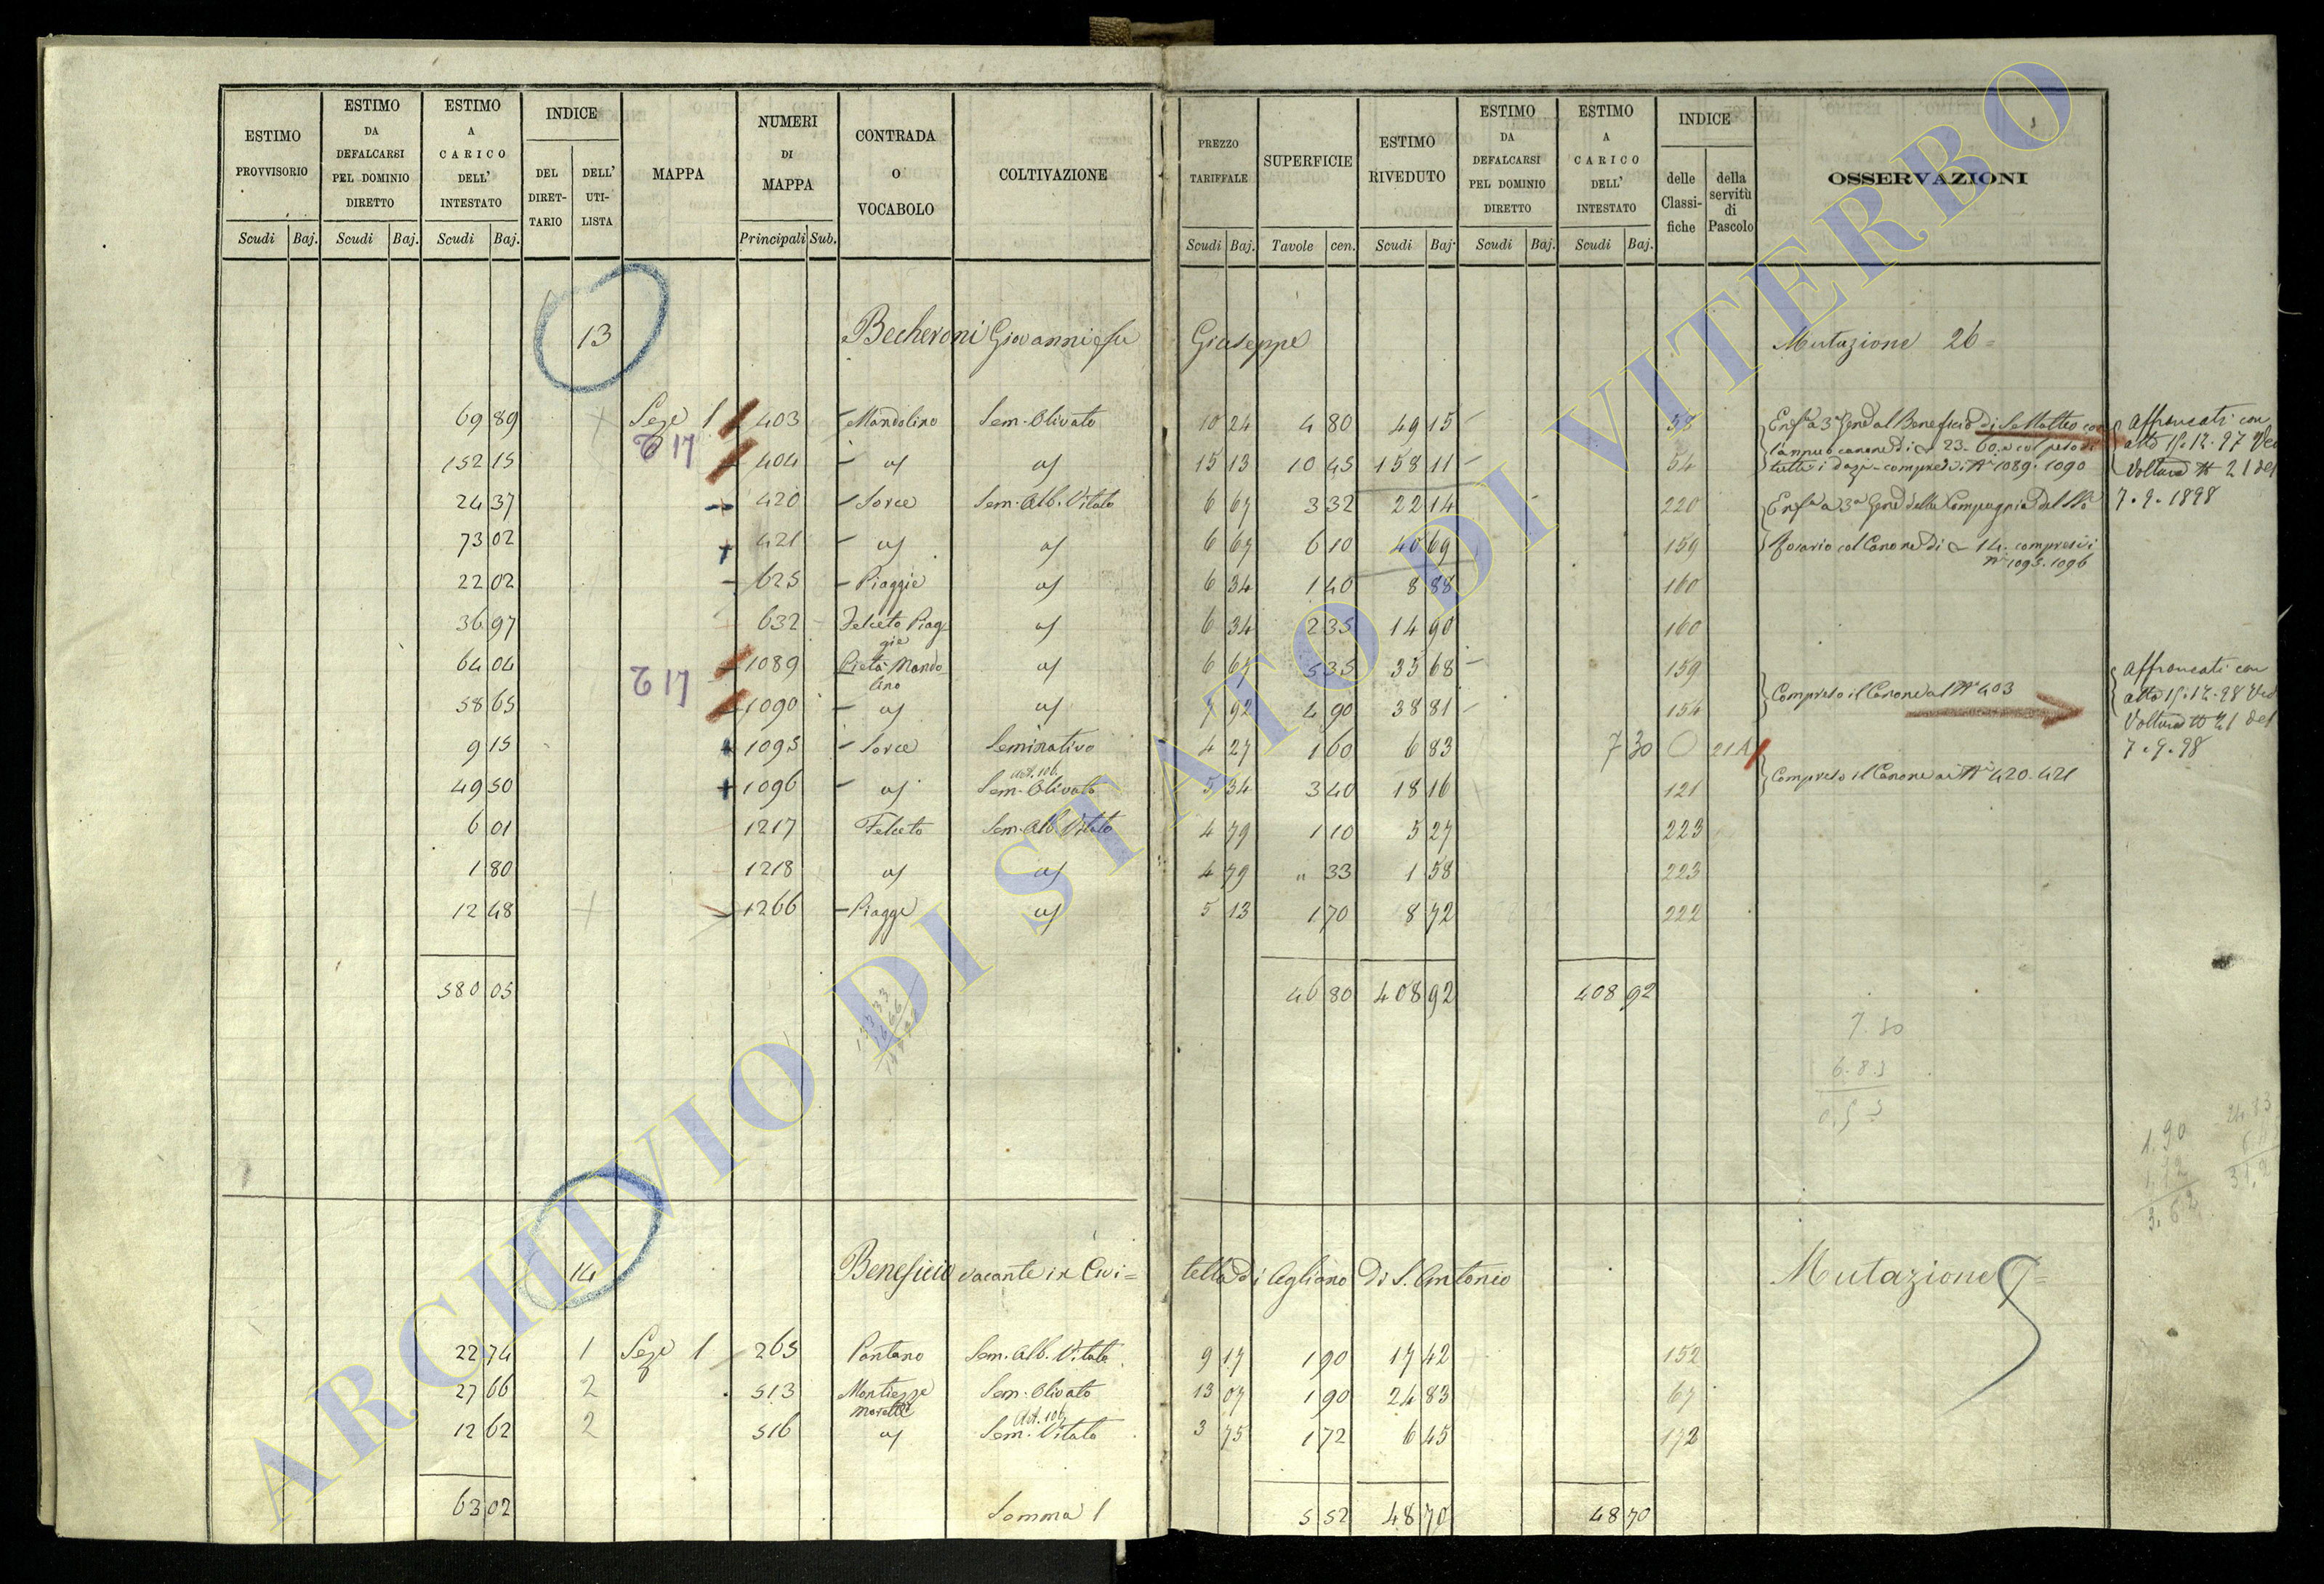 ESTIMO PROVVISORIO | ESTIMO DA DEFALCARSI PEL DOMINIO DIRETTO | ESTIMO A CARICO DELL' INTESTATO | INDICE DEL DIRET-TARIO | DELL' UTI-LISTA | MAPPA | NUMERI DI MAPPA | CONTRADA O VOCABOLO | COLTIVAZIONE | PREZZO TARIFFALE | SUPERFICIE | ESTIMO RIVEDUTO | ESTIMO DA DEFALCARSI PEL DOMINIO DIRETTO | ESTIMO A CARICO DELL' INTESTATO | INDICE delle Classi-fiche | della servitù di Pascolo | OSSERVAZIONI
Scudi Baj. | Scudi Baj. | Scudi Baj. | Principali Sub. | Scudi Baj. | Tavole cen. | Scudi Baj | Scudi Baj. | Scudi Baj.
13 Becheroni Giovanni fu Giuseppe Mutazione 26=
69 89 Seze 1 403 Mandolino Sem. Olivato 10 24 4 80 49 15 53
152 15 404 15 13 10 45 158 11 54
24 37 420 Sorce Sem. Alb. Vitato 6 67 3 32 22 14 220
73 02 421 6 67 6 10 40 69 159
22 02 625 Piaggie 6 34 1 40 8 88 160
36 97 632 Felceto Piaggie 6 34 2 35 14 90 160
64 04 1089 Pietà Mandolino 6 67 5 35 35 68 159
58 65 1090 7 92 4 90 38 81 154
9 15 1095 Sorce Seminativo 4 27 1 60 6 83 7 30 21
49 50 1096 Art. 106 Sem. Olivato 5 34 3 40 18 16 121
6 01 1217 Felceto Sem. Alb. Vitato 4 79 1 10 5 27 223
1 80 1218 4 79 " 33 1 58 223
12 48 1266 Piagge 5 13 1 70 8 72 222
580 05 46 80 408 92 408 92
al Beneficio di S. Matteo
l'annuo canone di 23-60 col peso di
tutti i dazi - compresi i Ni 1089. 1090
della Compagnia del SSo
Rosario col Canone di 14. compresi i
ni 1095. 1096
Compreso il Canone al No 403
Compreso il Canone ai Ni 420-421
Affrancati con
atto 15.12.97 Ved
Voltura N 21 del
7.9.1898
Affrancati con
atto 15.12.98 Ved
Voltura N 21 del
7.9.98
7.30
6.83
1.90
3.62
14 Beneficio vacante in Civi=tella di Agliano di S. Antonio Mutazione
22 74 1 Seze 1 265 Pantano Sem. Alb. Vitato 9 17 1 90 17 42 152
27 66 2 513 Sem. Olivato 13 07 1 90 24 83 67
12 62 2 516 Art. 106 Sem. Vitato 3 75 1 72 6 45 172
63 02 Somma 1 5 52 48 70 48 70
ARCHIVIO DI STATO DI VITERBO